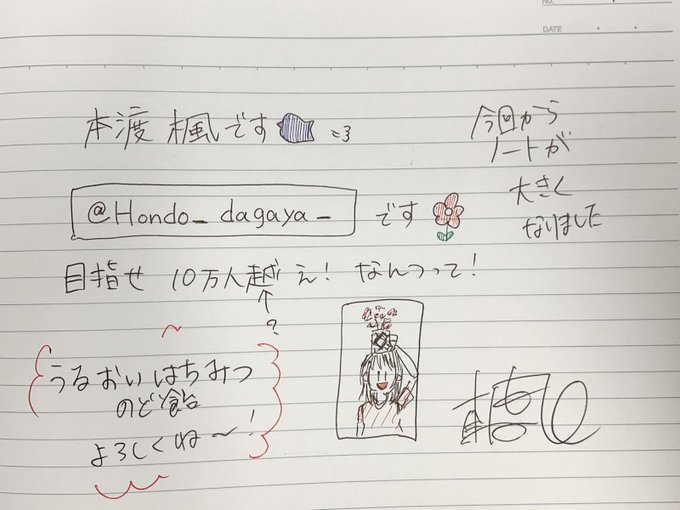 No.
DATE
本渡 楓です =3
今回から
ノートが
大きく
なりました
@Hondo_dagaya_ です
目指せ 10万人越え! なんつって!
?
うるおいはちみつ
のど飴
よろしくね〜!